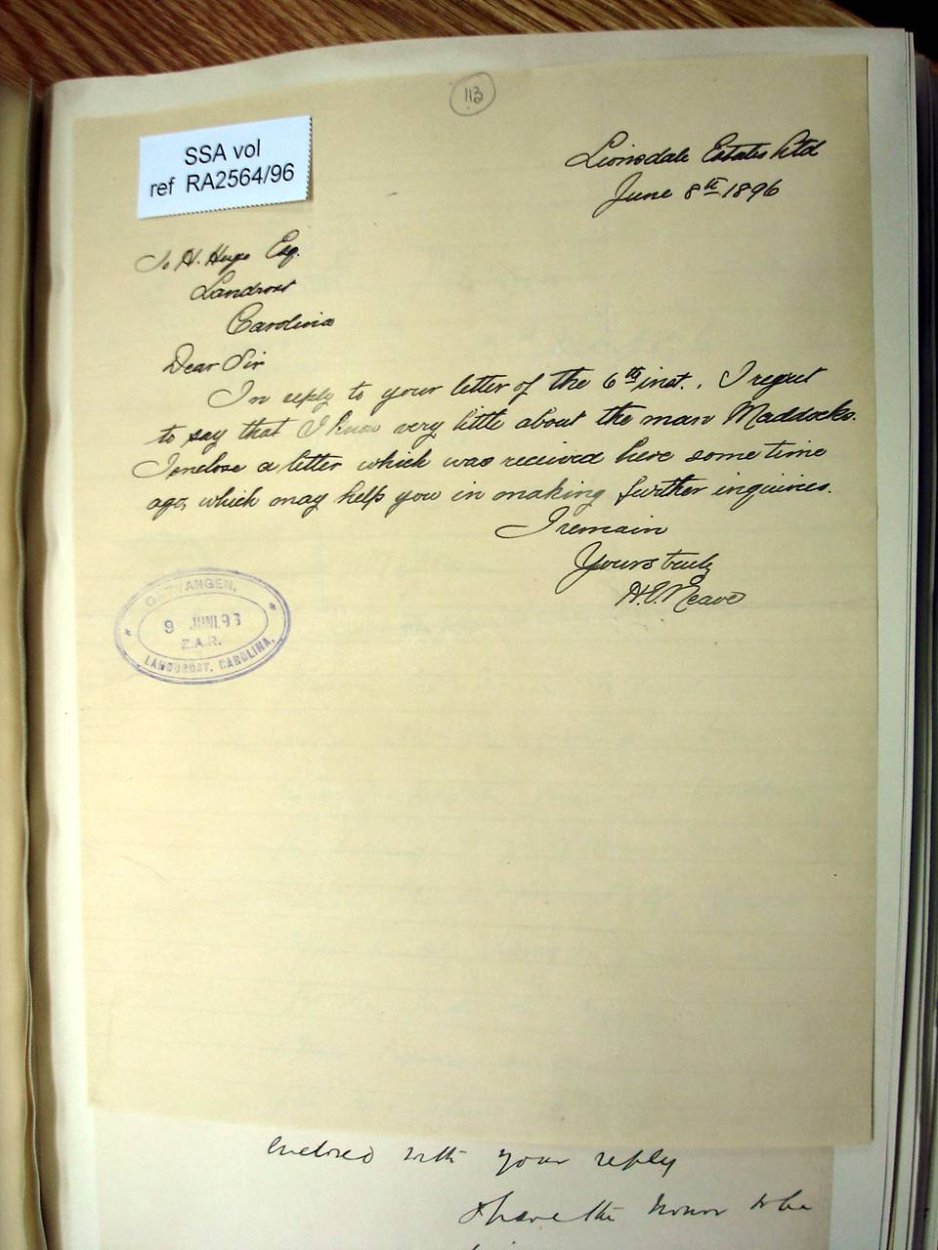 113
SSA vol
ref RA2564/96
Lionsdale Estates Ltd
June 8th 1896
To H. Hugo Esq.
Landrost
Carolina
Dear Sir
In reply to your letter of the 6th inst., I regret
to say that I know very little about the man Maddocks.
I enclose a letter which was received here some time
ago, which may help you in making further inquiries.
I remain
Yours truly
H.E. Neave
ONTVANGEN,
9 JUNI.96
Z.A.R.
LANDDROST, CAROLINA.
enclosed with your reply
I have the honor to be